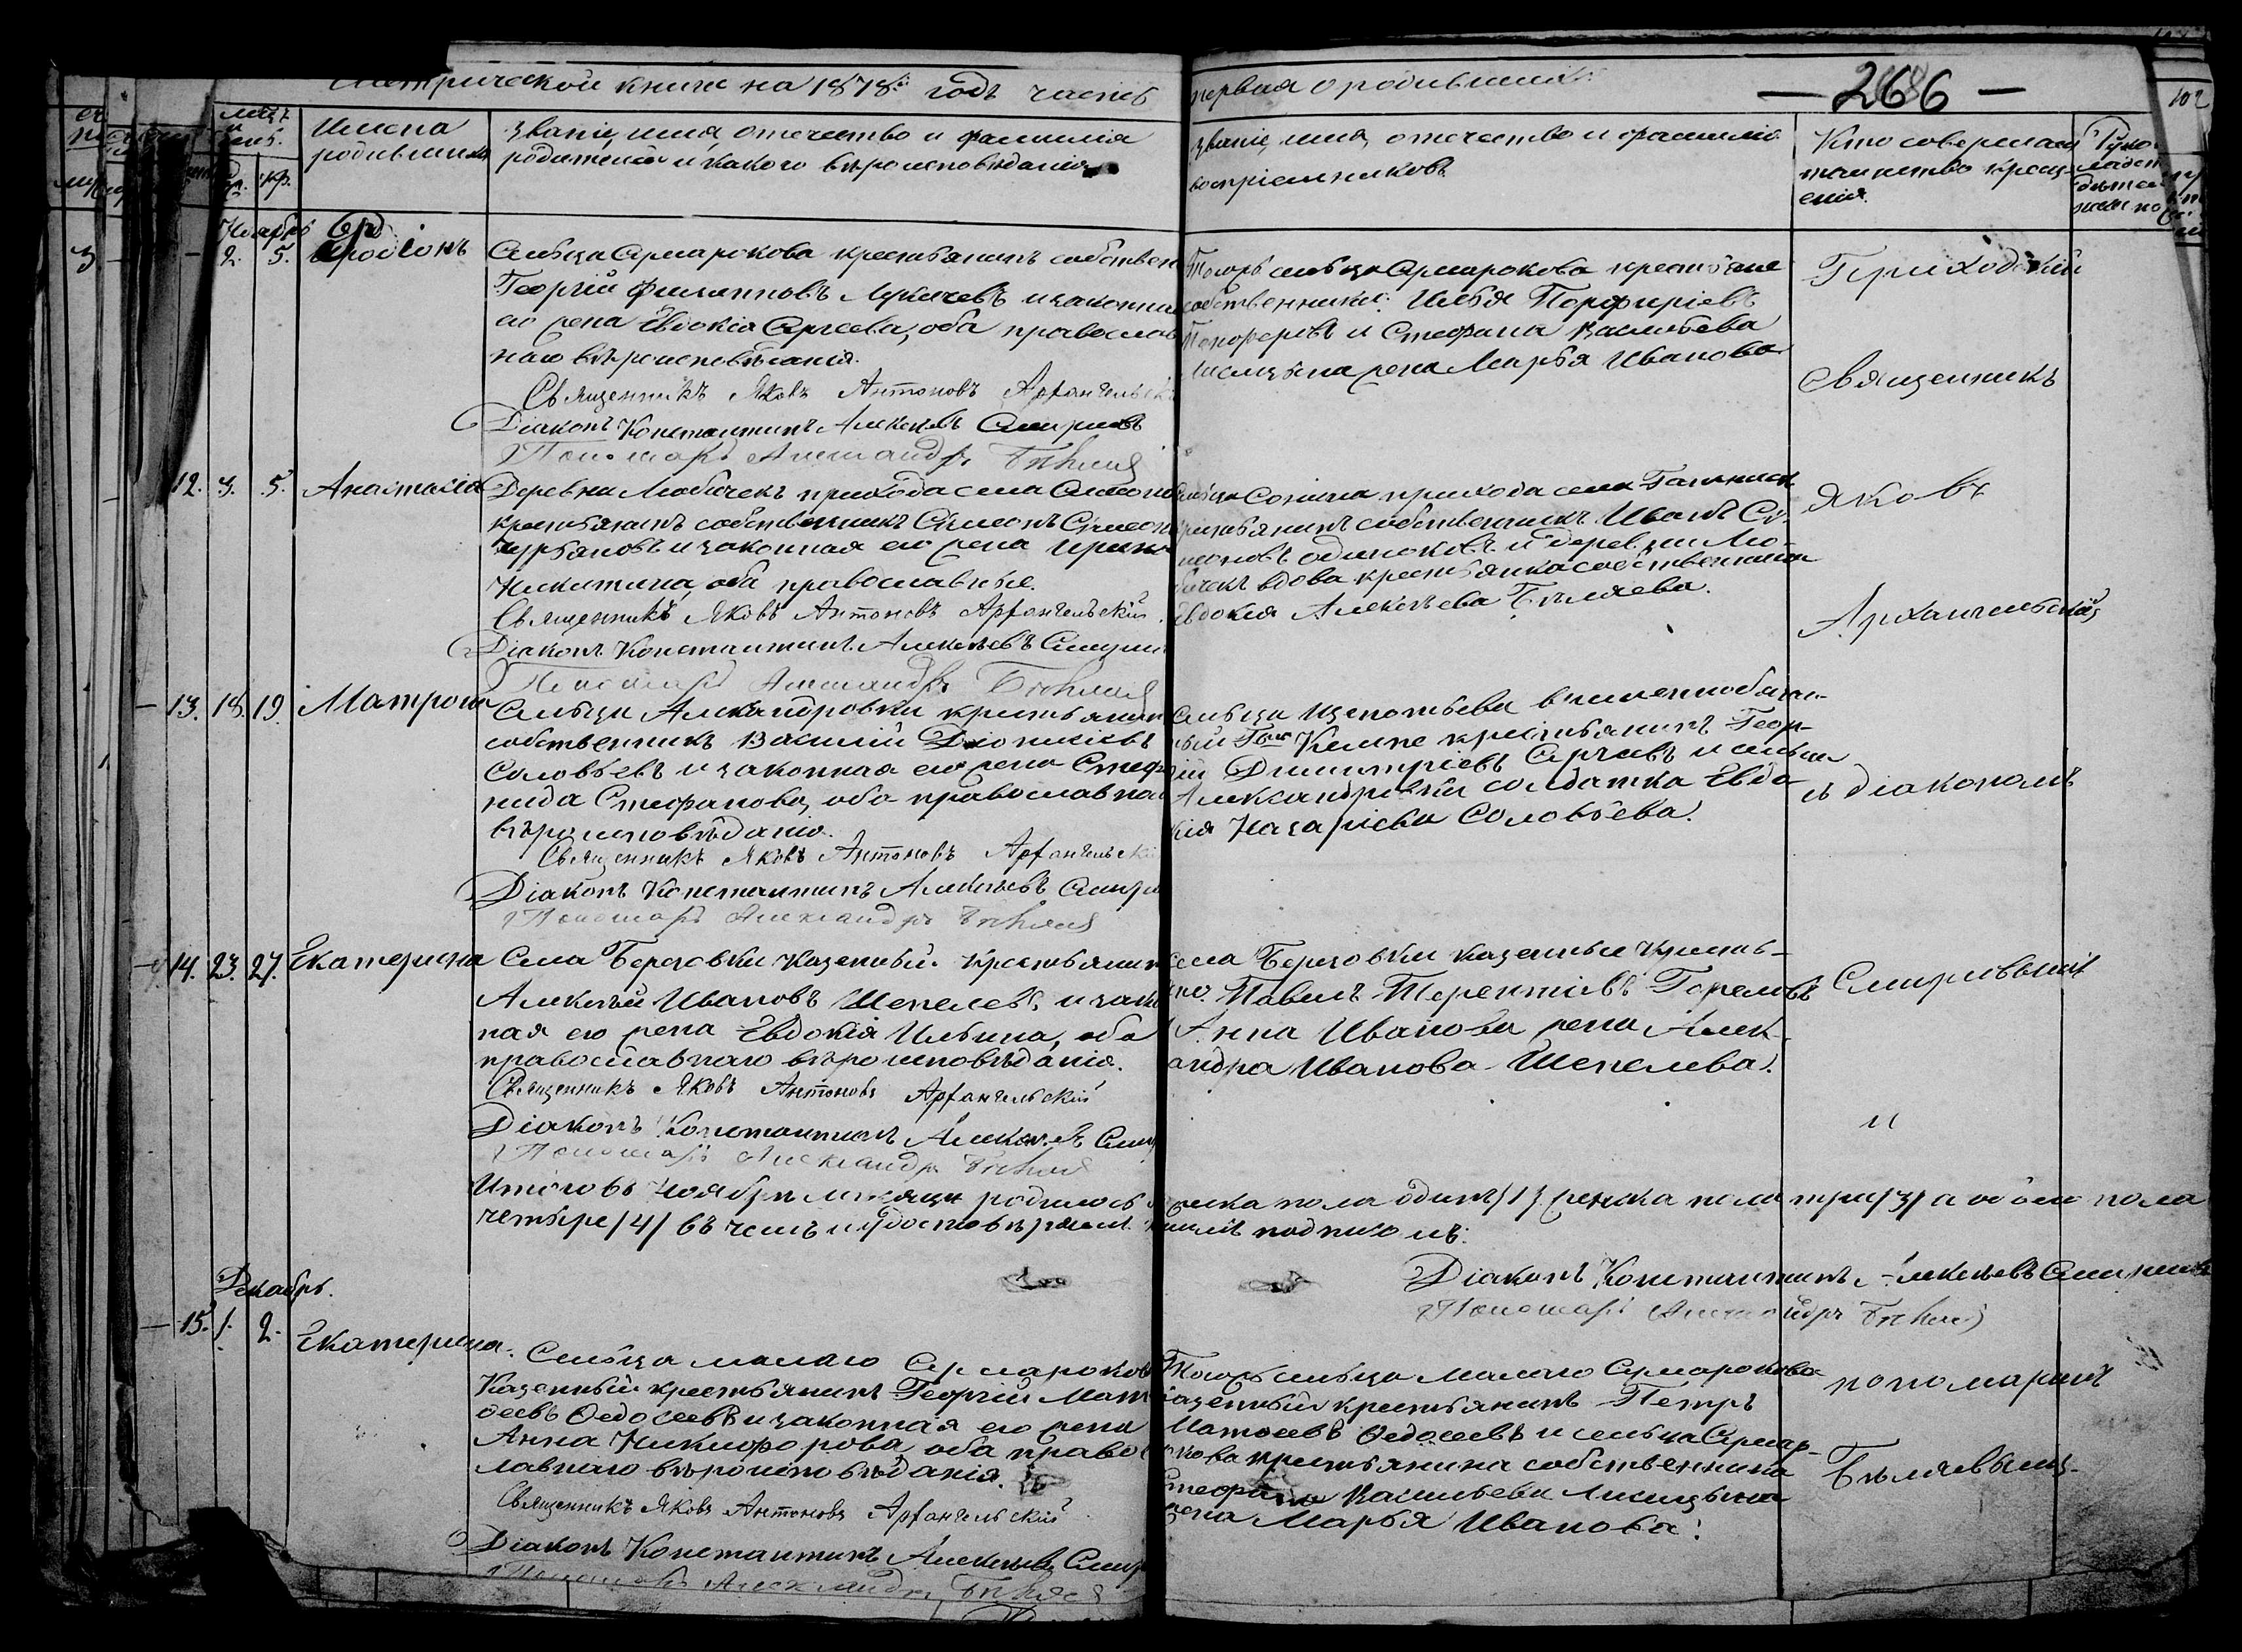 Метрической книги на 1878й годъ часть
первая о родившихся
— 266 —
102
Имена
родившихся
Званіе, имя, отечество и фамилія
родителей и какого вѣроисповѣданія
Званіе, имя, отечество и фамилія
воспріемниковъ
Кто совершалъ
таинство крещ-
енія.
Ноябрь
3 2. 5. Иродіонъ
Сельца Ярмарокова крестьянинъ собствен
Георгій Филипповъ Лукичевъ и законная
его жена Евдокія Сергеева, оба православ
наго вѣроисповѣданія.
Священникъ Яковъ Антоновъ Архангельск
Діаконъ Константинъ Алексѣевъ Смирновъ
Пономарь Александръ Бѣляев
Тогожъ сельца Ярмарокова крестьяне
собственники: Илья Порфиріевъ
и Стефана Васильева
Лисицына жена Марья Иванова
Приходскій
Священникъ
12. 3. 5. Анастасія
Деревни Любичекъ прихода села
крестьянинъ собственникъ Сѵмеонъ Сѵмеоновъ
и законная его жена Ирина
Никитина, оба православные.
Священникъ Яковъ Антоновъ Архангельскій.
Діаконъ Константинъ Алексѣевъ Смирн
Пономарь Александръ Бѣляев
Сельца Сонина прихода села
крестьянинъ собственникъ Иванъ Сѵ-
меоновъ Одиноковъ и деревни Лю-
бичекъ вдова крестьянка собственница
Евдокія Алексѣева Бѣляева.
Яковъ
Архангельскій
13. 18. 19. Матрона
Сельца Александровки крестьянинъ
собственникъ Василій Діонисіевъ
Соловьевъ и законная его жена Стефа
нида Стефанова, оба православнаго
вѣроисповѣданія.
Священникъ Яковъ Антоновъ Архангельскі
Діаконъ Константинъ Алексѣевъ Смирн
Пономарь Александръ Бѣляев
Сельца Щепотьева временнообязан-
ный Гна Кемпе крестьянинъ Геор-
гій Димитріевъ Сергѣевъ и сельца
Александровки солдатка Евдо
кія Назарьева Соловьева.
съ діакономъ
14. 23. 27. Екатерина
Села Березовки казенный крестьянинъ
Алексѣй Ивановъ Шепелевъ и закон
ная его жена Евдокія Ильина, оба
православнаго вѣроисповѣданія.
Священникъ Яковъ Антоновъ Архангельскій
Діаконъ Константинъ Алексѣевъ Смир
Пономарь Александръ Бѣляев
Села Березовки казенные кресть-
яне Павелъ Терентіевъ Гореловъ
Анна Иванова жена Алек-
андра Иванова Шепелева.
Смирновымъ
и
Итого въ Ноябрѣ мѣсяцѣ родилось мужеска пола одинъ /1/ женска пола три /3/ а обоего пола
четыре /4/ въ чемъ и удостовѣряемъ своимъ подписомъ:
Діаконъ Константинъ Алексѣевъ Смирновъ
Пономарь Александръ Бѣляев
Декабрь.
15. 1. 2. Екатерина.
Сельца малаго Ярмароков
Казенный крестьянинъ Георгій Мат
ѳеевъ Ѳедосеевъ и законная его жена
Анна Никифорова, оба правос
лавнаго вѣроисповѣданія.
Священникъ Яковъ Антоновъ Архангельскій
Діаконъ Константинъ Алексѣевъ Смир
Пономарь Александръ Бѣляев
Тогожъ сельца Малаго Ярмарокова
казенный крестьянинъ Петръ
Матѳеевъ Ѳедосеевъ и сельца Ярмар-
окова крестьянина собственника
Стефана Васильева Лисицына
жена Марья Иванова.
пономаремъ
Бѣляевымъ.